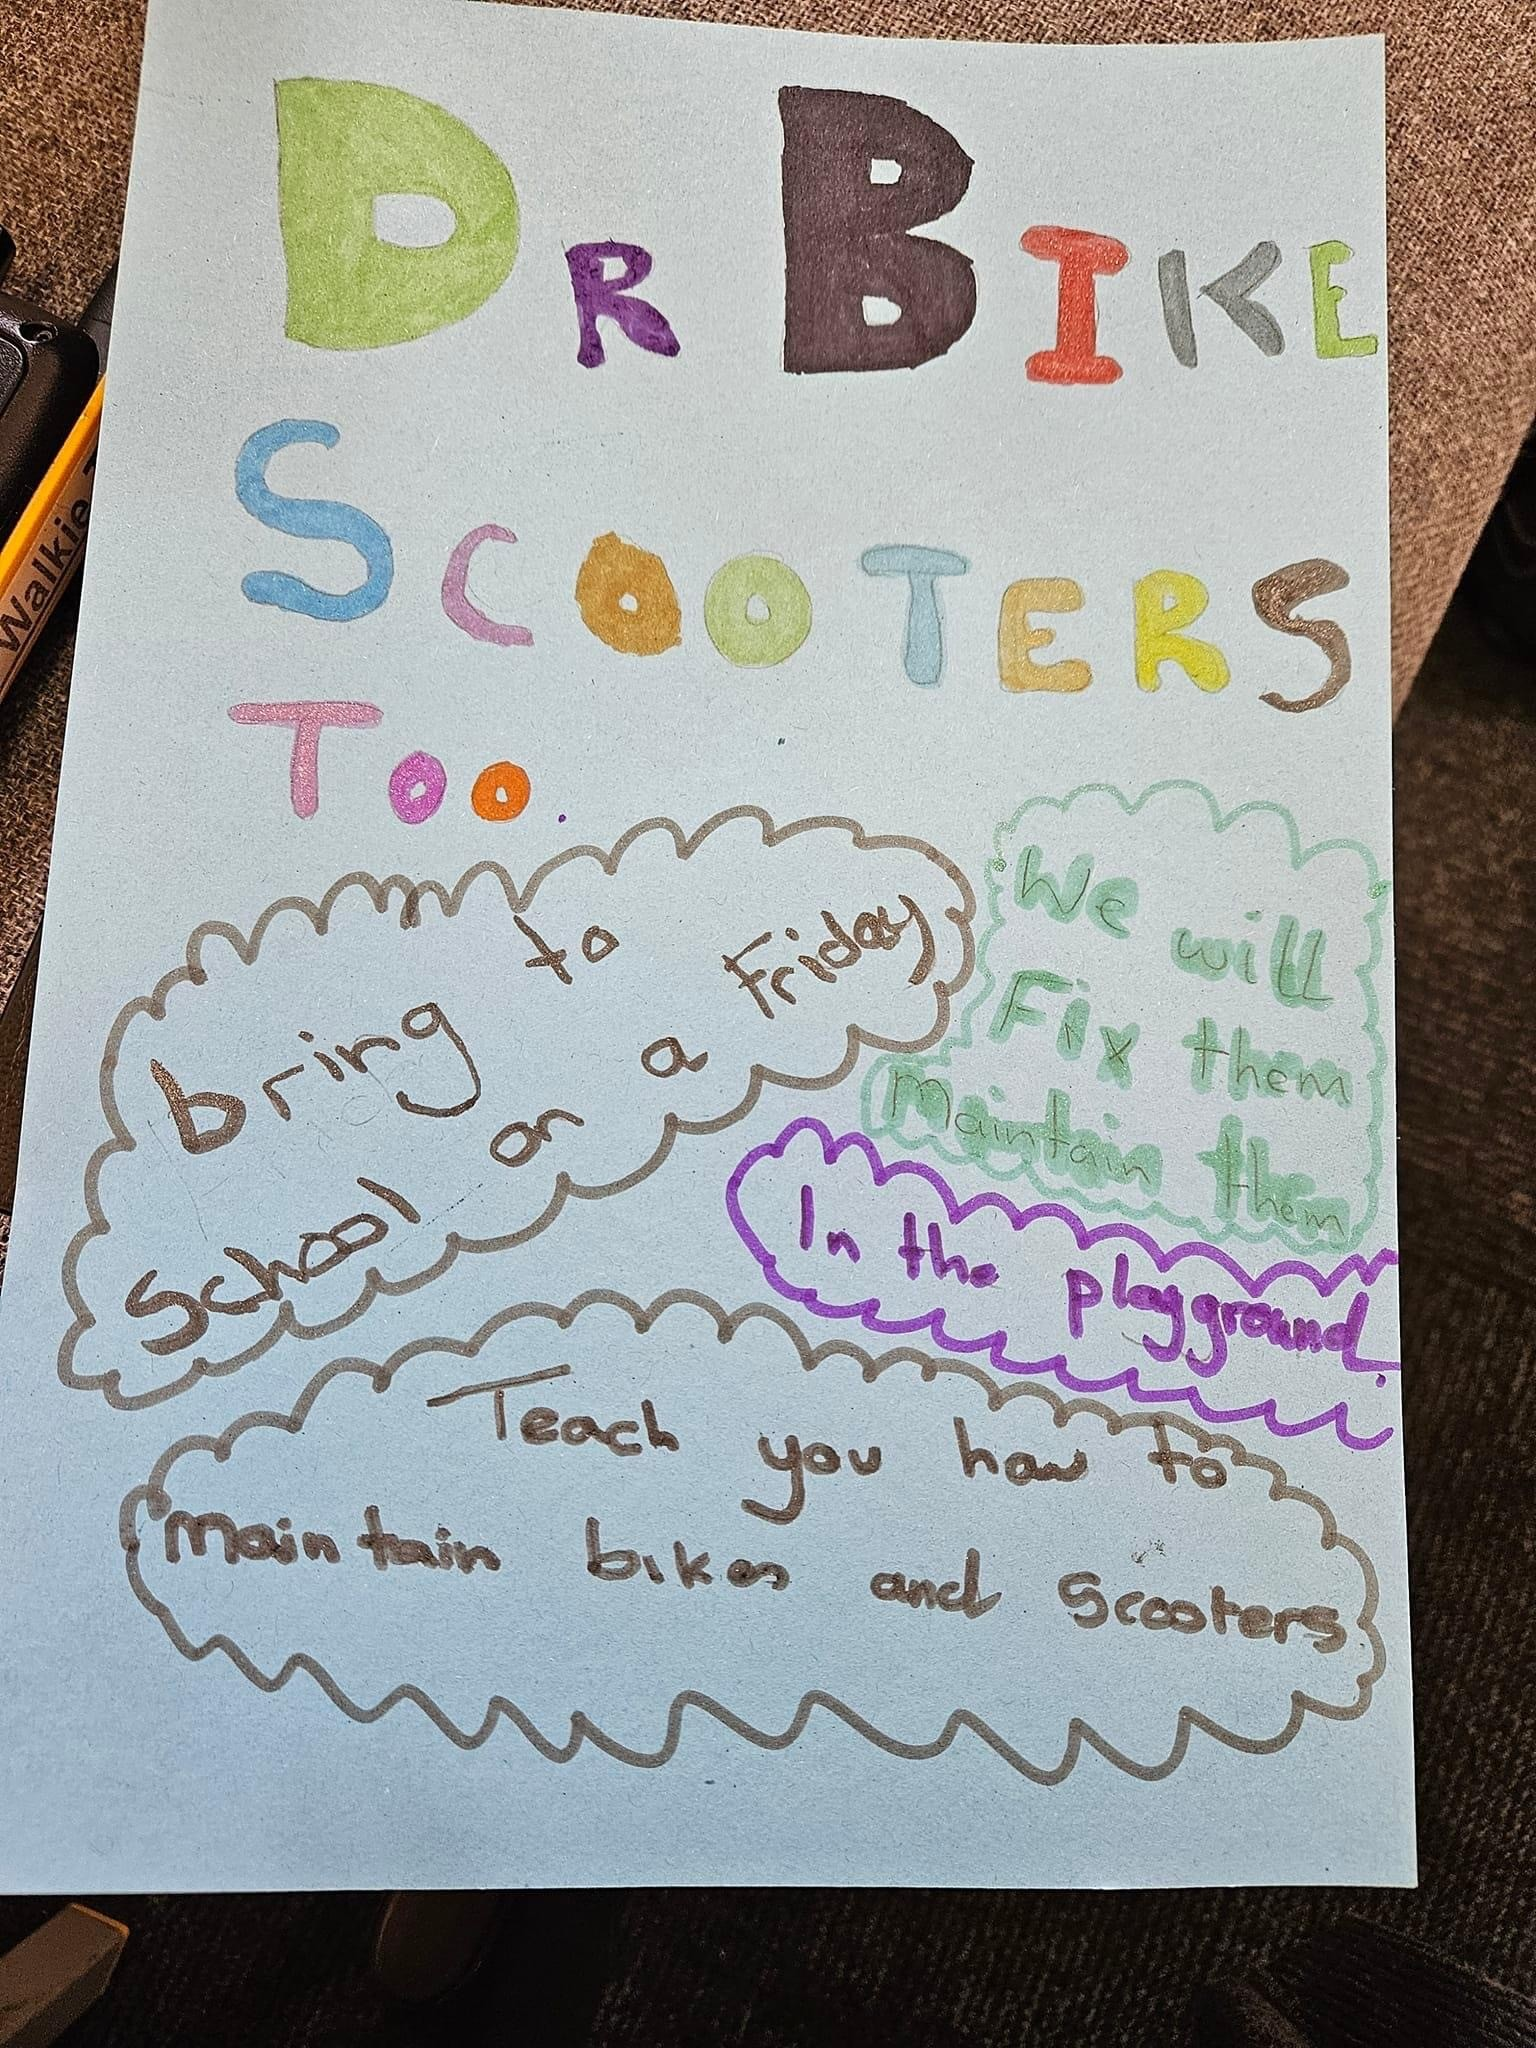 DR BIKE
SCOOTERS
TOO.
bring to
School on a Friday
We will
Fix them
Maintain them
In the playground.
Teach you how to
maintain bikes and scooters
Walkie